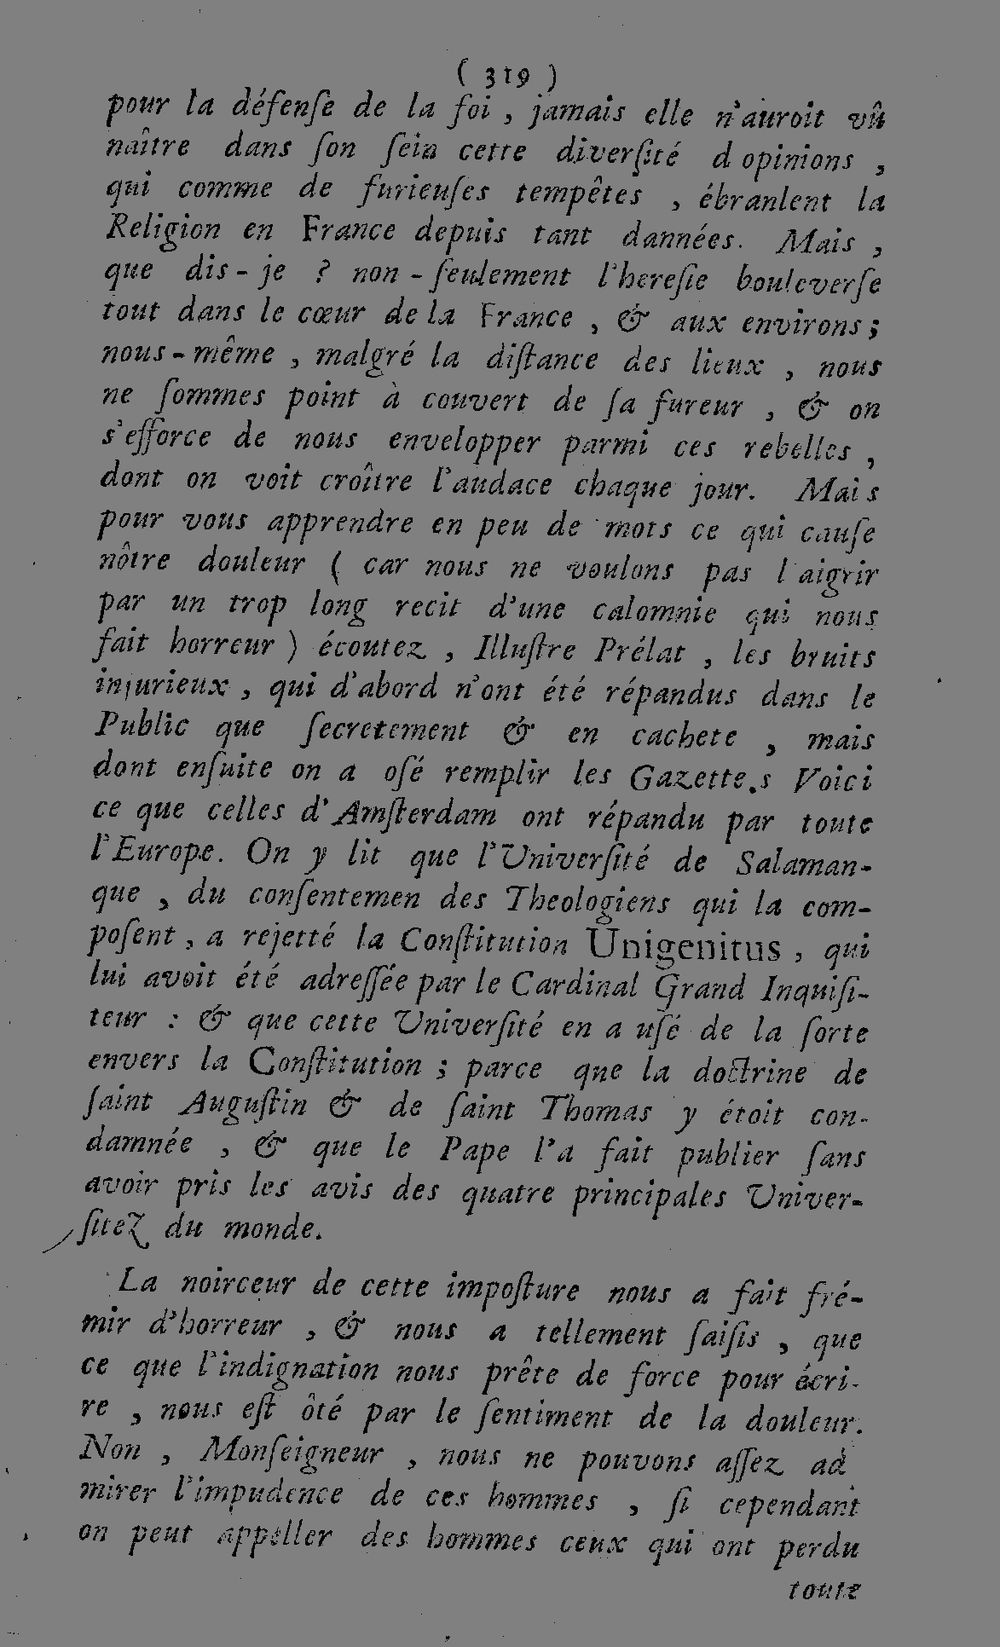 ( 319 )
pour la défenſe de la foi , jamais elle n'auroit vû
naître dans ſon ſein cette diverſité d opinions ,
qui comme de furieuſes tempêtes , ébranlent la
Religion en France depuis tant dannées. Mais ,
que dis-je ? non-ſeulement l'hereſie bouleverſe
tout dans le cœur de la France , & aux environs ;
nous-même , malgré la diſtance des lieux , nous
ne ſommes point à couvert de ſa fureur , & on
s'efforce de nous envelopper parmi ces rebelles ,
dont on voit croître l'audace chaque jour. Mais
pour vous apprendre en peu de mots ce qui cauſe
nôtre douleur ( car nous ne voulons pas l aigrir
par un trop long recit d'une calomnie qui nous
fait horreur ) écoutez , Illuſtre Prélat , les bruits
injurieux , qui d'abord n'ont été répandus dans le
Public que ſecretement & en cachete , mais
dont enſuite on a oſé remplir les Gazette.s Voici
ce que celles d'Amſterdam ont répandu par toute
l'Europe. On y lit que l'Univerſité de Salaman-
que , du conſentemen des Theologiens qui la com-
poſent , a rejetté la Conſtitution Unigenitus , qui
lui avoit été adreſſée par le Cardinal Grand Inquiſi-
teur : & que cette Univerſité en a uſé de la ſorte
envers la Conſtitution ; parce que la doctrine de
ſaint Auguſtin & de ſaint Thomas y étoit con-
damnée , & que le Pape l'a fait publier ſans
avoir pris les avis des quatre principales Univer-
ſitez du monde.
La noirceur de cette impoſture nous a fait fré-
mir d'horreur , & nous a tellement ſaiſis , que
ce que l'indignation nous prête de force pour écri-
re , nous eſt ôté par le ſentiment de la douleur.
Non , Monſeigneur , nous ne pouvons aſſez ad
mirer l'impudence de ces hommes , ſi cependant
on peut appeller des hommes ceux qui ont perdu
toute